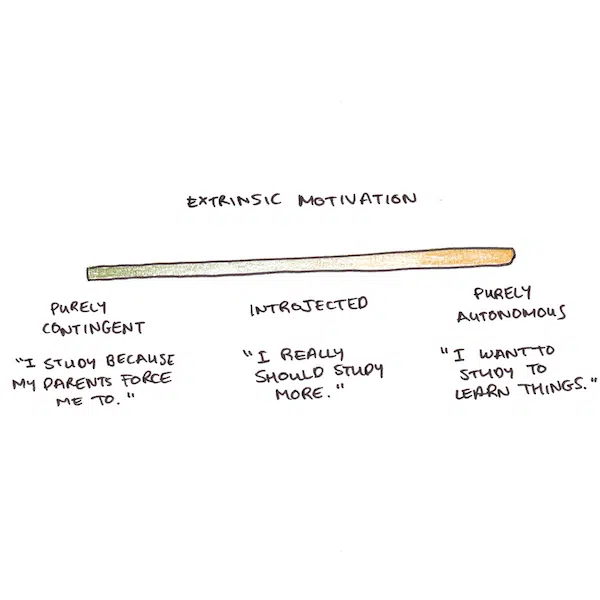 EXTRINSIC MOTIVATION
PURELY
CONTINGENT
"I STUDY BECAUSE
MY PARENTS FORCE
ME TO."
INTROJECTED
"I REALLY
SHOULD STUDY
MORE."
PURELY
AUTONOMOUS
"I WANT TO
STUDY TO
LEARN THINGS."